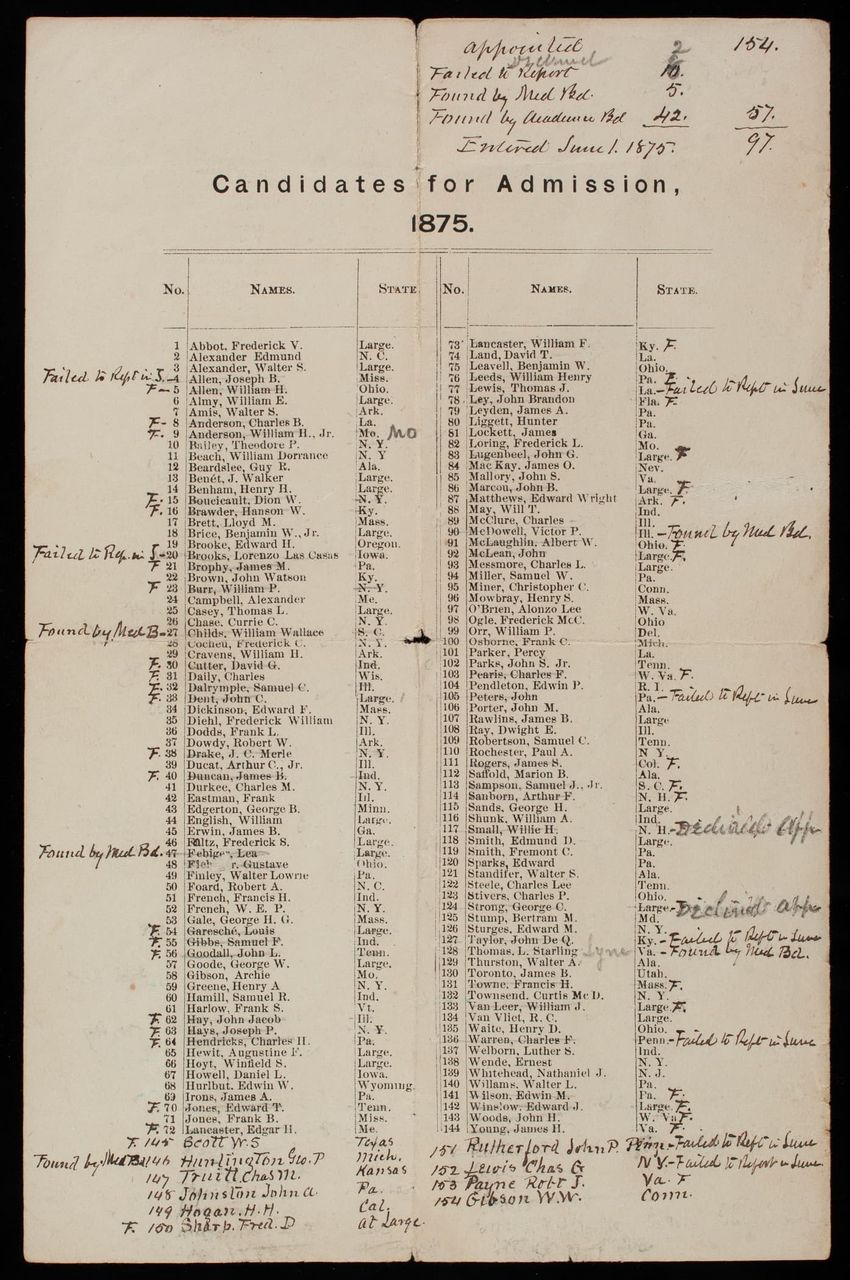 Appointed 2 154.
Declined
Failed to Report 10.
Found by Med Bd. 5.
Found by Academic Bd 42. 57.
Entered June 1. 1875. 97.
Candidates for Admission,
1875.
No. NAMES. STATE
1 Abbot, Frederick V. Large.
2 Alexander Edmund N. C.
3 Alexander, Walter S. Large.
Failed to Rept in J. 4 Allen, Joseph B. Miss.
F 5 Allen, William H. Ohio.
6 Almy, William E. Large.
7 Amis, Walter S. Ark.
F 8 Anderson, Charles B. La.
F. 9 Anderson, William H., Jr. Mo. Mo
10 Bailey, Theodore P. N. Y.
11 Beach, William Dorrance N. Y
12 Beardslee, Guy R. Ala.
13 Benét, J. Walker Large.
14 Benham, Henry H. Large.
F. 15 Boucicault, Dion W. N. Y.
F. 16 Brawder, Hanson W. Ky.
17 Brett, Lloyd M. Mass.
18 Brice, Benjamin W., Jr. Large.
19 Brooke, Edward H. Oregon.
Failed to Rep. in J-20 Brooks, Lorenzo Las Casas Iowa.
F 21 Brophy, James M. Pa.
22 Brown, John Watson Ky.
F 23 Burr, William P. N. Y.
24 Campbell, Alexander Me.
25 Casey, Thomas L. Large.
26 Chase, Currie C. N. Y.
Found by Med B-27 Childs, William Wallace S. C.
28 Cocheu, Frederick C. N. Y.
29 Cravens, William H. Ark.
F. 30 Cutter, David G. Ind.
F. 31 Daily, Charles Wis.
F. 32 Dalrymple, Samuel C. Ill.
F. 33 Dent, John C. Large.
34 Dickinson, Edward F. Mass.
35 Diehl, Frederick William N. Y.
36 Dodds, Frank L. Ill.
37 Dowdy, Robert W. Ark.
F. 38 Drake, J. C. Merle N. Y.
39 Ducat, Arthur C., Jr. Ill.
F. 40 Duncan, James B. Ind.
41 Durkee, Charles M. N. Y.
42 Eastman, Frank Ill.
43 Edgerton, George B. Minn.
44 English, William Large.
45 Erwin, James B. Ga.
46 Faltz, Frederick S. Large.
Found by Med Bd. 47 Febiger, Lea Large.
48 Gustave Ohio.
49 Finley, Walter Lowrie Pa.
50 Foard, Robert A. N. C.
51 French, Francis H. Ind.
52 French, W. E. P. N. Y.
53 Gale, George H. G. Mass.
F. 54 Garesché, Louis Large.
F. 55 Gibbs, Samuel F. Ind.
F. 56 Goodall, John L. Tenn.
57 Goode, George W. Large.
58 Gibson, Archie Mo.
59 Greene, Henry A N. Y.
60 Hamill, Samuel R. Ind.
61 Harlow, Frank S. Vt.
F. 62 Hay, John Jacob Ill.
F. 63 Hays, Joseph P. N. Y.
F. 64 Hendricks, Charles H. Pa.
65 Hewit, Augustine F. Large.
66 Hoyt, Winfield S. Large.
67 Howell, Daniel L. Iowa.
68 Hurlbut, Edwin W. Wyoming.
69 Irons, James A. Pa.
F. 70 Jones, Edward T. Tenn.
71 Jones, Frank B. Miss.
F. 72 Lancaster, Edgar H. Me.
F. 145 Scott W. S Texas
Found by Med Bd 146 Huntington Geo. P Mich.
147 Truitt, Chas M. Kansas
148 Johnston John A. Pa.
149 Hogan, H. H. Cal.
F. 150 Sharp, Fred. D at Large.
No. NAMES. STATE.
73 Lancaster, William F. Ky. F.
74 Land, David T. La.
75 Leavell, Benjamin W. Ohio.
76 Leeds, William Henry Pa. F.
77 Lewis, Thomas J. La.-Failed to Rept in June
78 Ley, John Brandon Fla. F.
79 Leyden, James A. Pa.
80 Liggett, Hunter Pa.
81 Lockett, James Ga.
82 Loring, Frederick L. Mo.
83 Lugenbeel, John G. Large. F
84 Mac Kay, James O. Nev.
85 Mallory, John S. Va.
86 Marcou, John B. Large. F.
87 Matthews, Edward Wright Ark. F.
88 May, Will T. Ind.
89 McClure, Charles Ill.
90 McDowell, Victor P. Ill. -Found by Med Bd.
91 McLaughlin, Albert W. Ohio. F.
92 McLean, John Large. F.
93 Messmore, Charles L. Large.
94 Miller, Samuel W. Pa.
95 Miner, Christopher C. Conn.
96 Mowbray, Henry S. Mass.
97 O'Brien, Alonzo Lee W. Va.
98 Ogle, Frederick McC. Ohio
99 Orr, William P. Del.
100 Osborne, Frank C. Mich.
101 Parker, Percy La.
102 Parks, John S. Jr. Tenn.
103 Pearis, Charles F. W. Va. F.
104 Pendleton, Edwin P. R. I.
105 Peters, John Pa.-Failed to Rept in June
106 Porter, John M. Ala.
107 Rawlins, James B. Large
108 Ray, Dwight E. Ill.
109 Robertson, Samuel C. Tenn.
110 Rochester, Paul A. N Y.
111 Rogers, James S. Col. F.
112 Saffold, Marion B. Ala.
113 Sampson, Samuel J., Jr. S. C. F.
114 Sanborn, Arthur F. N. H. F.
115 Sands, George H. Large.
116 Shunk, William A. Ind.
117 Small, Willie H. N. H.-Declined App
118 Smith, Edmund D. Large.
119 Smith, Fremont C. Pa.
120 Sparks, Edward Pa.
121 Standifer, Walter S. Ala.
122 Steele, Charles Lee Tenn.
123 Stivers, Charles P. Ohio.
124 Strong, George C. Large-Declined App
125 Stump, Bertram M. Md.
126 Sturges, Edward M. N. Y.
127 Taylor, John De Q. Ky. -Failed to Rept in June
128 Thomas, L. Starling Va. -Found by Med Bd.
129 Thurston, Walter A. Ala.
130 Toronto, James B. Utah.
131 Towne, Francis H. Mass. F.
132 Townsend, Curtis McD. N. Y.
133 Van Leer, William J. Large. F.
134 Van Vliet, R. C. Large.
135 Waite, Henry D. Ohio.
136 Warren, Charles F. Penn.-Failed to Rept in June
137 Welborn, Luther S. Ind.
138 Wende, Ernest N. Y.
139 Whitehead, Nathaniel J. N. J.
140 Willams, Walter L. Pa.
141 Wilson, Edwin M. Pa. F.
142 Winslow, Edward J. Large. F.
143 Woods, John H. W. Va F.
144 Young, James H. Va. F.
151 Rutherford John P. Penn-Failed to Rept in June
152 Lewis Chas G N Y.-Failed to Report in June
153 Payne Robt J. Va. F
154 Gibson W. W. Conn.